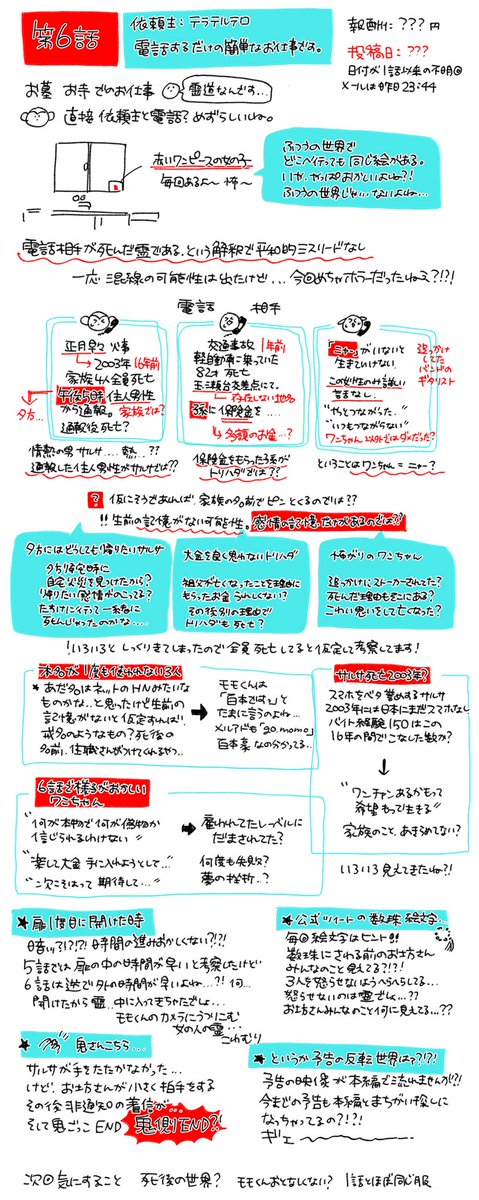 第6話
依頼主：テラテルテロ
電話するだけの簡単なお仕事です。
報酬：???円
投稿日：???
日付が1話以来の不明◎
メールは昨日23:44
お墓 お寺でのお仕事
霊道なんです…
直接依頼主と電話？めずらしいね。
赤いワンピースの女の子
毎回あるよ〜 怖〜
ふつうの世界で
どこへ行っても同じ絵がある。
いや、やっぱおかしいよね?!
ふつうの世界じゃ…ないよね…
電話相手が死んだ霊である、という解釈で平和的ミスリードなし
一応 混線の可能性は出たけど… 今回めちゃホラーだったねェ?!?!
電話 相手
正月早々 火事
→2003年 16年前
家族4人全員死亡
午後5時 住人男性
から通報。家族では?
通報後死亡?
夕方…
情熱の男サルサ…熱…??
通報した住人男性がサルサでは??
交通事故 1年前
軽自動車に乗っていた
82才 死亡
玉三瀬台交差点にて。
→存在しない地名
孫に保険金を…
→多額のお金…?
保険金をもらった孫が
トリハダでは??
「ニャー」がいないと
生きていけない
この女性のみ詳しい
言及なし。
"やっとつながった"
"いつもつながらない"
ワンちゃん以外ではダメだった?
追っかけ
してた
バンドの
ギタリスト
ということはワンちゃん=ニャー?
? 仮にそうであれば、家族の名前でピンとくるのでは??
!! 生前の記憶がない可能性。感情の記憶だけがあるのでは??
夕方にはどうしても帰りたいサルサ
夕方5時定時に
自宅火災を見つけたから?
帰りたい感情がのこってる?
たすけに行って一緒に
死んじゃったのかな…
大金を良く思わないトリハダ
祖父が亡くなったことを理由に
もらったお金 うれしくない?
その後別の理由で
トリハダも死亡?
怖がりのワンちゃん
追っかけにストーカーされてた?
死んだ理由もそこにある?
こわい思いをして亡くなった?
!いろいろとしっくりきてしまったので全員死亡してると仮定して考察してます!
本名が1度も使われない3人
*あだ名はネットのHNみたいな
ものかな…と思ったけど生前の
記憶がないと仮定すれば…
戒名のようなもの?死後の
名前。住職さんがつけてくれるやつ…
モモくんは
「百本です?」と
たまに言うのよね…
メルアドも"20.momo"
百本菜なの分かってる…
サルサ死亡2003年?
スマホをベタ褒めするサルサ
2003年には日本にまだスマホなし
バイト経験150はこの
16年の間でこなした数か?
"ワンチャンあるかもって
希望もって生きる"
家族のこと、あきらめてない?
いろいろ見えてきたね?!
6話で様子がおかしい
ワンちゃん
"何が本物で何が偽物か
信じられるわけない"
"楽して大金手に入れようとして…"
"二次こそはって期待して…"
雇われてたレーベルに
だまされてた?
何度も失敗?
夢の挫折…?
*扉1度目に開けた時
暗ッ?!?!?! 時間の進みおかしくない?!?!
5話では扉の中の時間が早いと考察したけど
6話は逆で外の時間が早いよね…?! 何…
開けたから霊…中に入ってきちゃたでしょ…
モモくんのカメラにうつりこむ
女の人の霊…
こわむり
*公式ツイートの数珠絵文字…
毎回絵文字はヒント!!
数珠にされる前のお坊さん
みんなのこと見えてる?!?!
3人を怒らせないようへらへらしてる…
怒らせないのは霊でしょ…??
お坊さんみんなのこと何に見えてる…??
* 鬼さんこちら…
サルサが手をたたかなかった…
けど、お坊さんが小さく拍手をする
その後 非通知の着信が…
そして鬼ごっこEND 鬼側END?!
*というか予告の反転世界は??!?!
予告の映像が本編で流れませんが?!
今までの予告も本編とまちがい探しに
なっちゃってるの?!?!
ギェ〜〜〜
次回気にすること 死後の世界? モモくんおとなしくない? 1話とほぼ同じ服